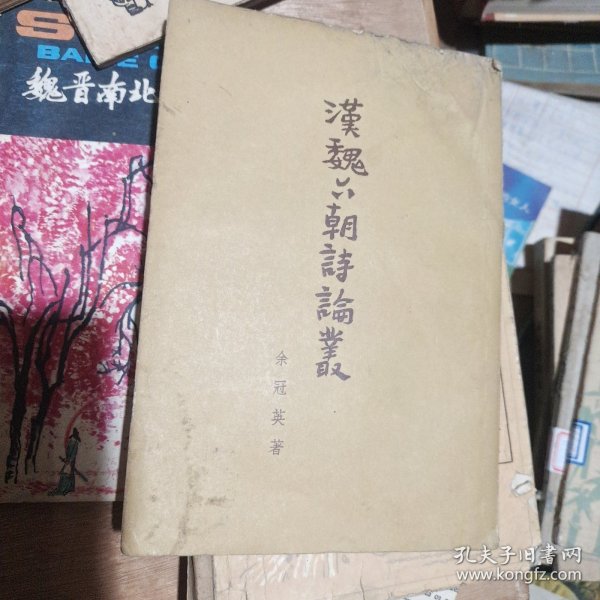 漢魏六朝詩論叢
余冠英著
魏晋南北
女人
孔夫子旧书网
www.kongfz.com